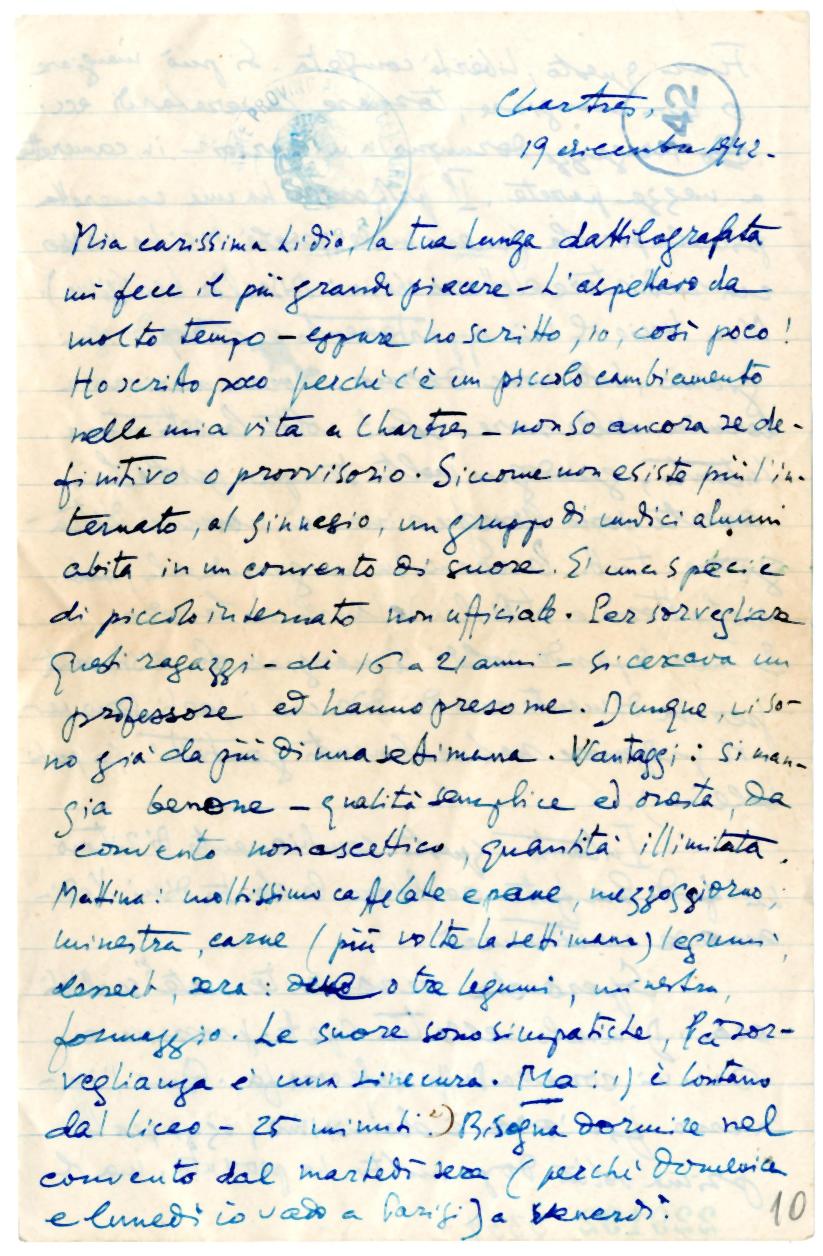 Chartres,
42
19 dicembre 1942.
Mia carissima Lidia, la tua lunga dattilografata
mi fece il più grande piacere - L'aspettavo da
molto tempo - eppure ho scritto, io, così poco!
Ho scritto poco perchè c'è un piccolo cambiamento
nella mia vita a Chartres - non so ancora se de-
finitivo o provvisorio. Siccome non esiste più l'in-
ternato, al ginnasio, un gruppo di undici alunni
abita in un convento di suore. E' una specie
di piccolo internato non ufficiale. Per sorvegliare
questi ragazzi - di 16 a 21 anni - si cercava un
professore ed hanno preso me. Dunque, vi so-
no già da più di una settimana. Vantaggi: si man-
gia benone - qualità semplice ed onesta, da
convento non ascettico, quantità illimitata.
Mattina: moltissimo caffelate e pane, mezzoggiorno:
minestra, carne (più volte la settimana) legumi,
dessert, sera: due o tre legumi, minestra,
formaggio. Le suore sono simpatiche, la sor-
veglianza è una sinecura. Ma: 1) è lontano
dal liceo - 25 minuti. 2) Bisogna dormire nel
convento dal martedì sera (perchè domenica
e lunedì io vado a Parigi) a venerdì.
10